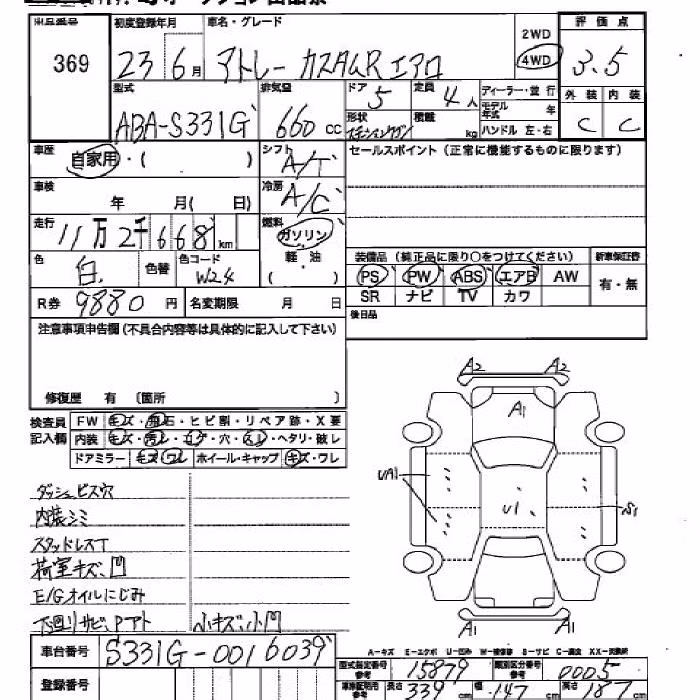 出品番号 初度登録年月 車名・グレード 2WD 評価点
369 23 6月 アトレー カスタムR エアロ 4WD 3.5
型式 排気量 ドア 5 定員 4人 ディーラー・並行 外装 内装
モデル年式 年
ABA-S331G 660cc 形状 ステーションワゴン 積載 kg ハンドル 左・右 C C
車歴 自家用・( ) シフト A/T セールスポイント(正常に機能するものに限ります)
車検 年 月( 日) 冷房 A/C
走行 11万2千668km 燃料 ガソリン
色 白 色替 色コード W24 軽・油 ( ) 装備品(純正品に限り○をつけてください) 新車保証書
PS PW ABS エアB AW 有・無
R券 9880円 名変期限 月 日 SR ナビ TV カワ
注意事項申告欄(不具合内容等は具体的に記入して下さい) 後日品
修復歴 有 〔箇所 〕
検査員記入欄 FW キズ・飛石・ヒビ割・リペア跡・X要
内装 キズ・汚レ・コゲ・穴・スレ・ヘタリ・破レ
ドアミラー キズ ワレ ホイール・キャップ キズ・ワレ
A2 A2
A1
UA1 U1 S1
A1 A1
ダッシュビス穴
内装シミ
スタッドレスT
荷室キズ、凹
E/Gオイルにじみ
下廻りサビ、Pアト 小キズ、小凹
A-キズ E-エクボ U-凹み W-補修跡 S-サビ C-腐食 XX-交換済
車台番号 S331G-0016039 型式指定番号参考 15879 類別区分番号参考 0005
登録番号 車検証明用参考 長さ 339cm 幅 147cm 高さ 187cm